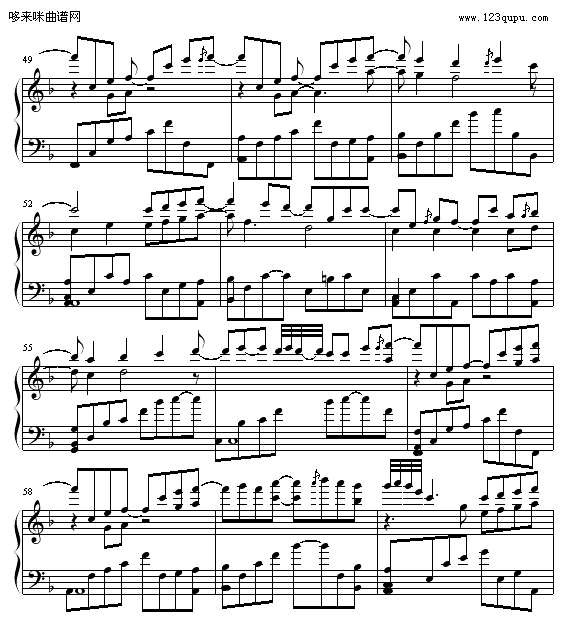 哆来咪曲谱网
www.123qupu.com
49
52
55
58